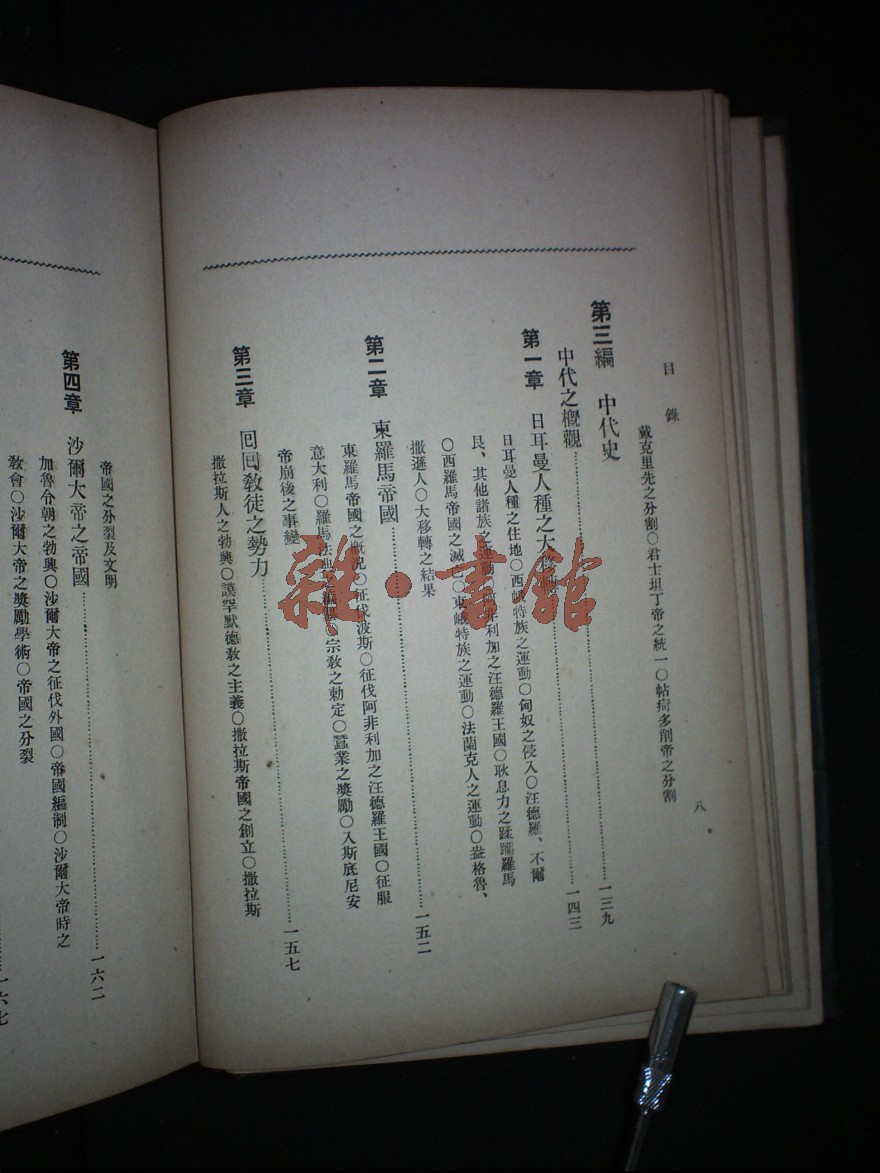 目錄
八
戴克里先之分割○君士坦丁帝之統一○帖䓫多削帝之分割
第三編 中代史
中代之槪觀……一三九
第一章 日耳曼人種之大移轉……一四三
日耳曼人種之住地○西峨特族之運動○匈奴之侵入○汪德羅、不爾
艮、其他諸族之運動○阿非利加之汪德羅王國○耿息力之蹂躪羅馬
○西羅馬帝國之滅亡○東峨特族之運動○法蘭克人之運動○盎格魯、
撒遜人○大移轉之結果
第二章 東羅馬帝國……一五二
東羅馬帝國之槪況○征伐波斯○征伐阿非利加之汪德羅王國○征服
意大利○羅馬法典之編纂○宗敎之勅定○蠶業之獎勵○入斯底尼安
帝崩後之事變
第三章 回回敎徒之勢力……一五七
撒拉斯人之勃興○謨罕默德敎之主義○撒拉斯帝國之創立○撒拉斯
帝國之分裂及文明
第四章 沙爾大帝之帝國……一六二
加魯令朝之勃興○沙爾大帝之征伐外國○帝國編制○沙爾大帝時之
敎會○沙爾大帝之獎勵學術○帝國之分裂
一六七
雜·書館